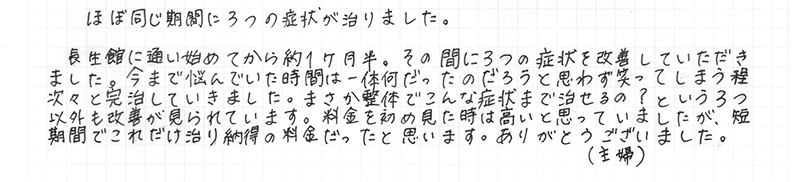 ほぼ同じ期間に3つの症状が治りました。
長生館に通い始めてから約1ヶ月半。その間に3つの症状を改善していただき
ました。今まで悩んでいた時間は一体何だったのだろうと思わず笑ってしまう程
次々と完治していきました。まさか整体でこんな症状まで治せるの？という3つ
以外も改善が見られています。料金を初め見た時は高いと思っていましたが、短
期間でこれだけ治り納得の料金だったと思います。ありがとうございました。
(主婦)